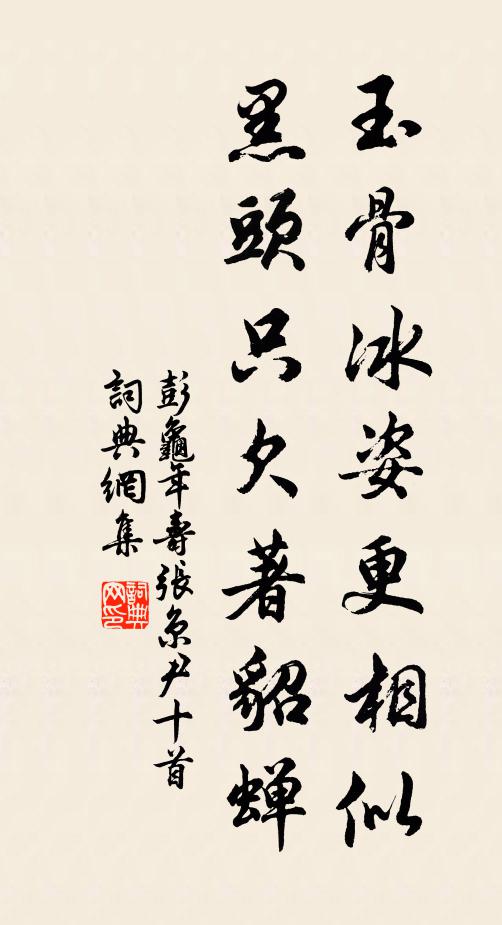 玉骨冰姿更相似
黑頭只欠著貂蟬
彭龜年壽張京尹十首
詞典網集
詞典
网印